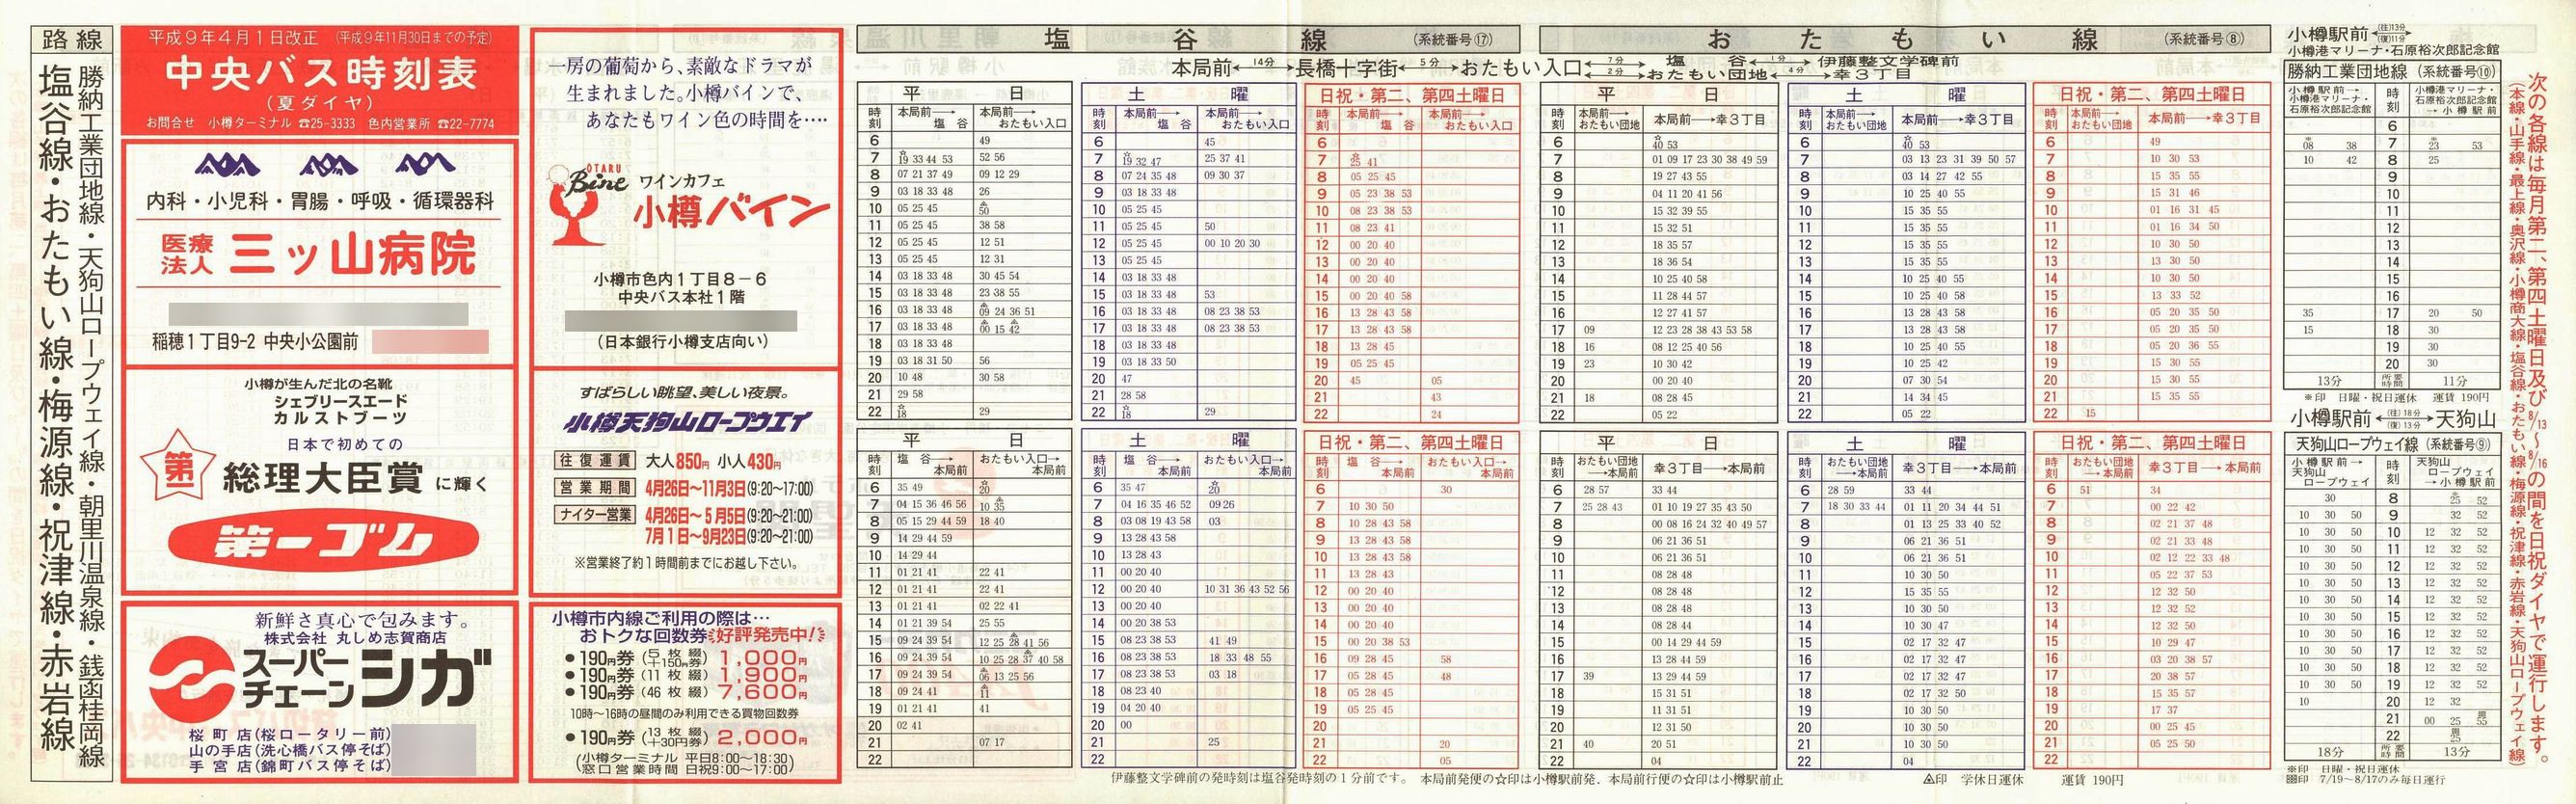 路線
勝納工業団地線・天狗山ロープウェイ線・朝里川温泉線・銭函桂岡線
塩谷線・おたもい線・梅源線・祝津線・赤岩線
平成9年4月1日改正 (平成9年11月30日までの予定)
中央バス時刻表
(夏ダイヤ)
お問合せ 小樽ターミナル ☎25-3333 色内営業所 ☎22-7774
内科・小児科・胃腸・呼吸・循環器科
医療法人 三ッ山病院
稲穂1丁目9-2 中央小公園前
小樽が生んだ北の名靴
シェブリースエード
カルストブーツ
日本で初めての
第一
総理大臣賞に輝く
第一ゴム
新鮮さ真心で包みます。
株式会社 丸しめ志賀商店
スーパーチェーン シガ
桜町店(桜ロータリー前)
山の手店(洗心橋バス停そば)
手宮店(錦町バス停そば)
一房の葡萄から、素敵なドラマが
生まれました。小樽バインで、
あなたもワイン色の時間を‥‥
OTARU
Bine
ワインカフェ
小樽バイン
小樽市色内1丁目8-6
中央バス本社1階
(日本銀行小樽支店向い)
すばらしい眺望、美しい夜景。
小樽天狗山ロープウエイ
往復運賃 大人850円 小人430円
営業期間 4月26日〜11月3日(9:20〜17:00)
ナイター営業 4月26日〜5月5日(9:20〜21:00)
7月1日〜9月23日(9:20〜21:00)
※営業終了約1時間前までにお越し下さい。
小樽市内線ご利用の際は…
おトクな回数券 好評発売中!
●190円券(5枚綴+150円券) 1,000円
●190円券(11枚綴) 1,900円
●190円券(46枚綴) 7,600円
10時〜16時の昼間のみ利用できる買物回数券
●190円券(13枚綴+30円券) 2,000円
(小樽ターミナル 平日8:00〜18:30)
(窓口営業時間 日祝9:00〜17:00)
塩谷線 (系統番号⑰)
おたもい線 (系統番号⑧)
本局前 ←14分→ 長橋十字街 ←5分→ おたもい入口 ←7分→ 塩谷 ←1分→ 伊藤整文学碑前
←2分→ おたもい団地 ←4分→ 幸3丁目
平日
時刻 本局前→塩谷 本局前→おたもい入口
6 49
7 ☆19 33 44 53 52 56
8 07 21 37 49 09 12 29
9 03 18 33 48 26
10 05 25 45 △50
11 05 25 45 38 58
12 05 25 45 12 51
13 05 25 45 12 31
14 03 18 33 48 30 45 54
15 03 18 33 48 23 38 55
16 03 18 33 48 △09 24 36 51
17 03 18 33 48 △00 15 △42
18 03 18 33 48
19 03 18 31 50 56
20 10 48 30 58
21 29 58
22 ☆18 29
土曜
時刻 本局前→塩谷 本局前→おたもい入口
6 45
7 ☆19 32 47 25 37 41
8 07 24 35 48 09 30 37
9 03 18 33 48
10 05 25 45
11 05 25 45 50
12 05 25 45 00 10 20 30
13 05 25 45
14 03 18 33 48
15 03 18 33 48 53
16 03 18 33 48 08 23 38 53
17 03 18 33 48 08 23 38 53
18 03 18 33 48
19 03 18 33 50
20 47
21 28 58
22 ☆18 29
日祝・第二、第四土曜日
時刻 本局前→塩谷 本局前→おたもい入口
6
7 ☆25 41
8 05 25 45
9 05 23 38 53
10 08 23 38 53
11 08 23 41
12 00 20 40
13 00 20 40
14 00 20 40
15 00 20 40 58
16 13 28 43 58
17 13 28 43 58
18 13 28 45
19 05 25 45
20 45 05
21 43
22 24
平日
時刻 本局前→おたもい団地 本局前→幸3丁目
6 ☆40 53
7 01 09 17 23 30 38 49 59
8 19 27 43 55
9 04 11 20 41 56
10 15 32 39 55
11 15 32 51
12 18 35 57
13 18 36 54
14 10 25 40 58
15 11 28 44 57
16 12 27 41 57
17 09 12 23 28 38 43 53 58
18 16 08 12 25 40 56
19 23 10 30 42
20 00 20 40
21 18 08 28 45
22 05 22
土曜
時刻 本局前→おたもい団地 本局前→幸3丁目
6 ☆40 53
7 03 13 23 31 39 50 57
8 03 14 27 42 55
9 10 25 40 55
10 15 35 55
11 15 35 55
12 15 35 55
13 15 35 55
14 10 25 40 55
15 10 25 40 58
16 13 28 43 58
17 13 28 43 58
18 10 25 40 55
19 10 25 42
20 07 30 54
21 14 34 45
22 05 22
日祝・第二、第四土曜日
時刻 本局前→おたもい団地 本局前→幸3丁目
6 49
7 10 30 53
8 15 35 55
9 15 31 46
10 01 16 31 45
11 01 16 34 50
12 10 30 50
13 13 30 50
14 10 30 50
15 13 33 52
16 05 20 35 50
17 05 20 35 50
18 05 20 36 55
19 15 30 55
20 15 30 55
21 15 35 55
22 15
平日
時刻 塩谷→本局前 おたもい入口→本局前
6 35 49 ☆20
7 04 15 36 46 56 10 △35
8 05 15 29 44 59 18 40
9 14 29 44 59
10 14 29 44
11 01 21 41 22 41
12 01 21 41 22 41
13 01 21 41 02 22 41
14 01 21 39 54 25 55
15 09 24 39 54 12 25 △28 41 56
16 09 24 39 54 10 25 28 △37 40 58
17 09 24 39 54 △06 13 25 56
18 09 24 41 △11
19 01 21 41 41
20 02 41
21 07 17
22
土曜
時刻 塩谷→本局前 おたもい入口→本局前
6 35 47 ☆20
7 04 16 35 46 52 09 26
8 03 08 19 43 58 03
9 13 28 43 58
10 13 28 43
11 00 20 40
12 00 20 40 10 31 36 43 52 56
13 00 20 40
14 00 20 38 53
15 08 23 38 53 41 49
16 08 23 38 53 18 33 48 55
17 08 23 38 53 03 18
18 08 23 40
19 04 20 40
20 00
21 25
22
日祝・第二、第四土曜日
時刻 塩谷→本局前 おたもい入口→本局前
6 30
7 10 30 50
8 10 28 43 58
9 13 28 43 58
10 13 28 43 58
11 13 28 43
12 00 20 40
13 00 20 40
14 00 20 40
15 00 20 38 53
16 09 28 45 58
17 05 28 45 48
18 05 28 45
19 05 25 45
20
21 20
22 05
平日
時刻 おたもい団地→本局前 幸3丁目→本局前
6 28 57 33 44
7 25 28 43 01 10 19 27 35 43 50
8 00 08 16 24 32 40 49 57
9 06 21 36 51
10 06 21 36 51
11 08 28 48
12 08 28 48
13 08 28 48
14 08 28 44
15 00 14 29 44 59
16 13 28 44 59
17 39 13 29 44 59
18 15 31 51
19 11 31 51
20 12 31 50
21 40 20 51
22 04
土曜
時刻 おたもい団地→本局前 幸3丁目→本局前
6 28 59 33 44
7 18 30 33 44 01 11 20 34 44 51
8 01 13 25 33 40 52
9 06 21 36 51
10 06 21 36 51
11 10 30 50
12 15 35 55
13 10 30 50
14 10 30 47
15 02 17 32 47
16 02 17 32 47
17 02 17 32 47
18 02 17 32 50
19 10 30 50
20 10 30 50
21 10 30 50
22 04
日祝・第二、第四土曜日
時刻 おたもい団地→本局前 幸3丁目→本局前
6 51 34
7 00 22 42
8 02 21 37 48
9 02 21 33 48
10 02 12 22 33 48
11 05 22 37 53
12 12 32 50
13 12 32 52
14 12 32 50
15 10 29 47
16 03 20 38 57
17 20 38 57
18 15 35 57
19 17 37
20 00 25 45
21 05 25 50
22
伊藤整文学碑前の発時刻は塩谷発時刻の1分前です。 本局前発便の☆印は小樽駅前発、本局前行便の☆印は小樽駅前止 △印 学休日運休 運賃 190円
小樽駅前 ←(往)13分 (復)11分→
小樽港マリーナ・石原裕次郎記念館
勝納工業団地線 (系統番号⑩)
小樽駅前→小樽港マリーナ・石原裕次郎記念館 時刻 小樽港マリーナ・石原裕次郎記念館→小樽駅前
6
※08 38 7 ※23 53
10 42 8 25
9
10
11
12
13
14
15
16
35 17 20 50
15 18 30
19 30
20 30
13分 所要時間 11分
※印 日曜・祝日運休 運賃 190円
小樽駅前 ←(往)18分 (復)13分→ 天狗山
天狗山ロープウェイ線 (系統番号⑨)
小樽駅前→天狗山ロープウェイ 時刻 天狗山ロープウェイ→小樽駅前
30 8 ※25 52
10 30 50 9 32 52
10 30 50 10 12 32 52
10 30 50 11 12 32 52
10 30 50 12 12 32 52
10 30 50 13 12 32 52
10 30 50 14 12 32 52
10 30 50 15 12 32 52
10 30 50 16 12 32 52
10 30 50 17 12 32 52
10 30 50 18 12 32 52
10 30 50 19 12 32 52
10 20 12 32
21 00 25 55
22 25
18分 所要時間 13分
※印 日曜・祝日運休
印 7/19〜8/17のみ毎日運行
次の各線は毎月第二、第四土曜日及び8/13〜8/16の間を日祝ダイヤで運行します。
(本線・山手線・最上線・奥沢線・小樽商大線・塩谷線・おたもい線・梅源線・祝津線・赤岩線・天狗山ロープウェイ線)